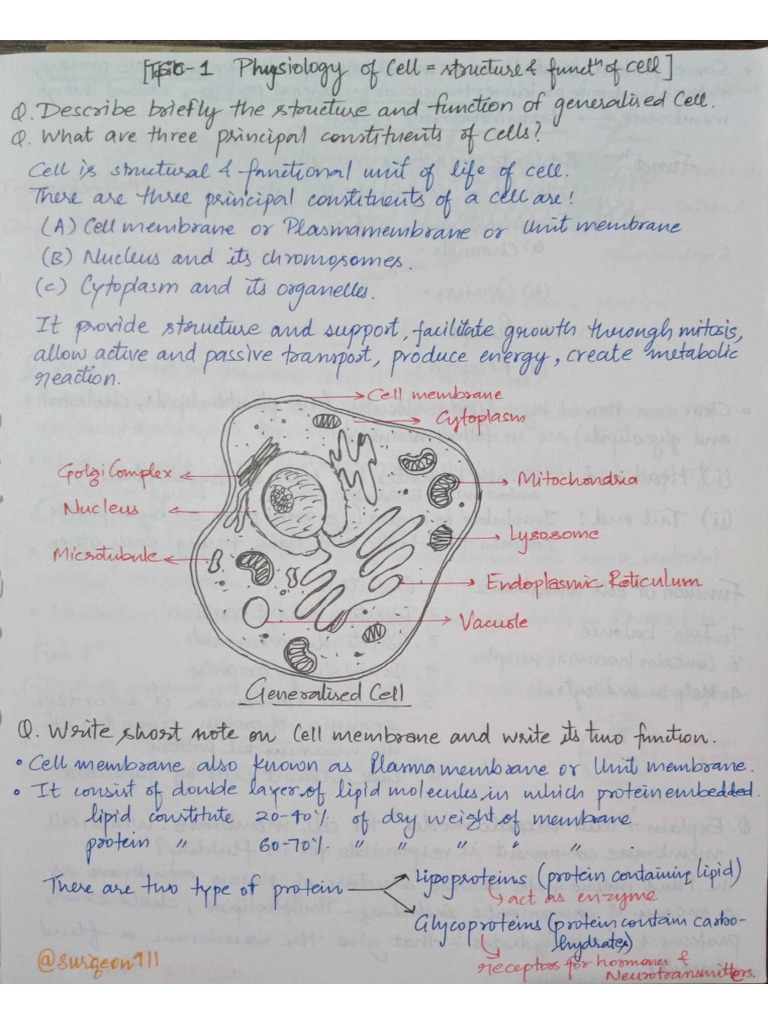 [Topic-1 Physiology of Cell = structure & functⁿ of cell]
Q. Describe briefly the structure and function of generalised Cell.
Q. What are three principal constituents of Cells?
Cell is structural & functional unit of life of cell.
There are three principal constituents of a cell are!
(A) Cell membrane or Plasmamembrane or Unit membrane
(B) Nucleus and its chromosomes.
(C) Cytoplasm and its organelles.
It provide structure and support, facilitate growth through mitosis,
allow active and passive transport, produce energy, create metabolic
reaction.
Cell membrane
Cytoplasm
Golgi Complex
Mitochondria
Nucleus
Lysosome
Microtubule
Endoplasmic Reticulum
Vacuole
Generalised Cell
Q. Write short note on Cell membrane and write its two function.
• Cell membrane also known as Plasma membrane or Unit membrane.
• It consist of double layer of lipid molecules, in which protein embedded.
lipid constitute 20-40% of dry weight of membrane
protein " 60-70% " " " " " .
There are two type of protein
Lipoproteins (protein containing lipid)
act as enzyme
Glycoproteins (protein contain carbo-
hydrates)
receptors for hormones &
Neurotransmitters.
@surgeon911